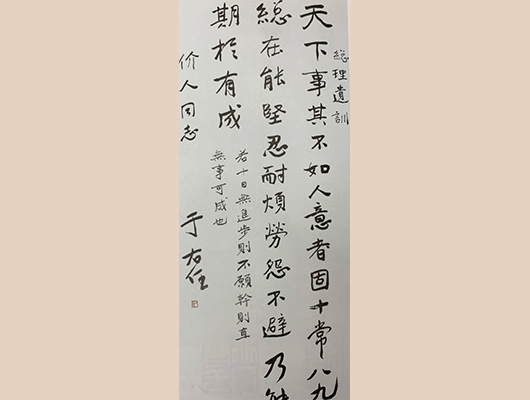 總理遺訓
天下事其不如人意者固十常八九
總在能堅忍耐煩勞怨不避乃能
期於有成
若十日無進步則不願幹則直
無事可成也
价人同志
于右任